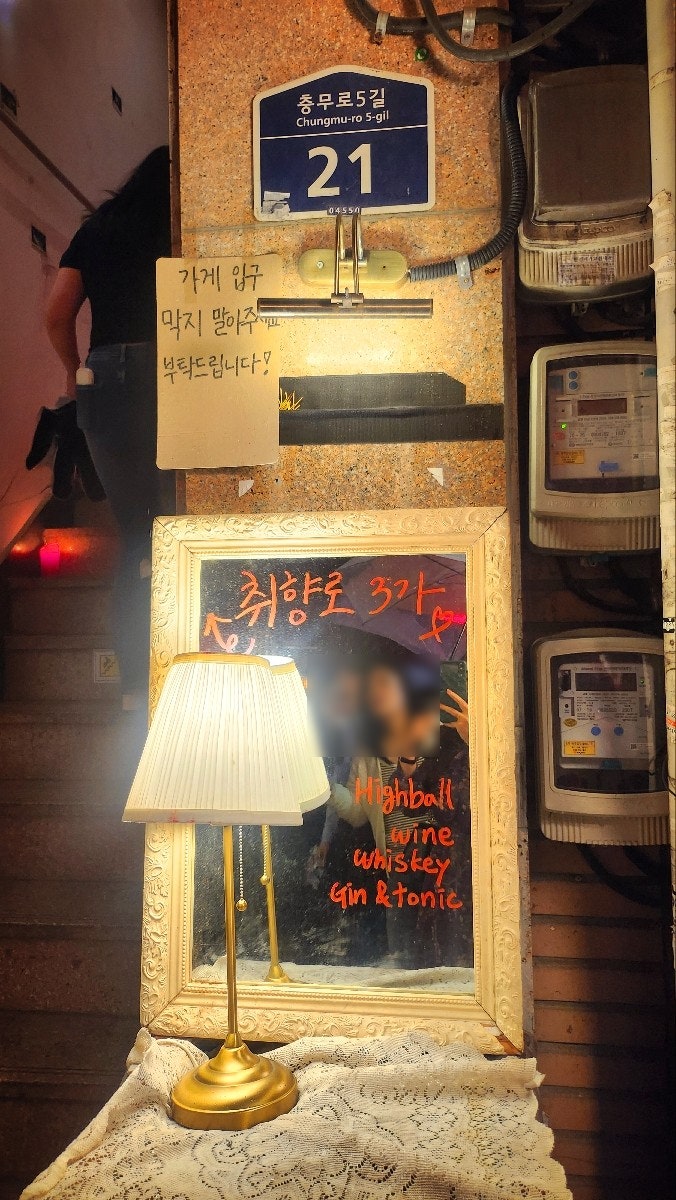 충무로5길
Chungmu-ro 5-gil
21
04554
가게 입구
막지 말아주세요
부탁드립니다!
취향로 3가
Highball
wine
whiskey
Gin & tonic